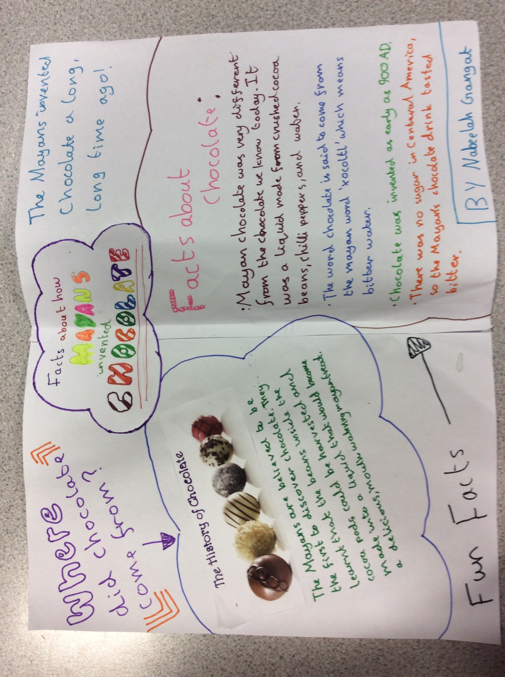 WHERE
did chocolate
come from?
Facts about how
MAYANS
invented
CHOCOLATE
The Mayans invented
Chocolate a long,
long time ago!
The History of Chocolate
The Mayans are believed to be
the first to discover chocolate. They
learnt that the beans inside the
cocoa pods could be harvested and
made into a liquid that would become
a delicious, mouthwatering mayan
Facts about
chocolate:
· Mayan chocolate was very different
from the chocolate we know today. It
was a liquid made from crushed cocoa
beans, chilli peppers, and water.
· The word chocolate is said to come from
the mayan word 'xocolatl' which means
bitter water.
· Chocolate was invented as early as 900 AD.
· There was no sugar in Centaral America,
so the Mayans chocolate drink tasted
bitter.
Fun Facts
BY Nabeelah Gangat